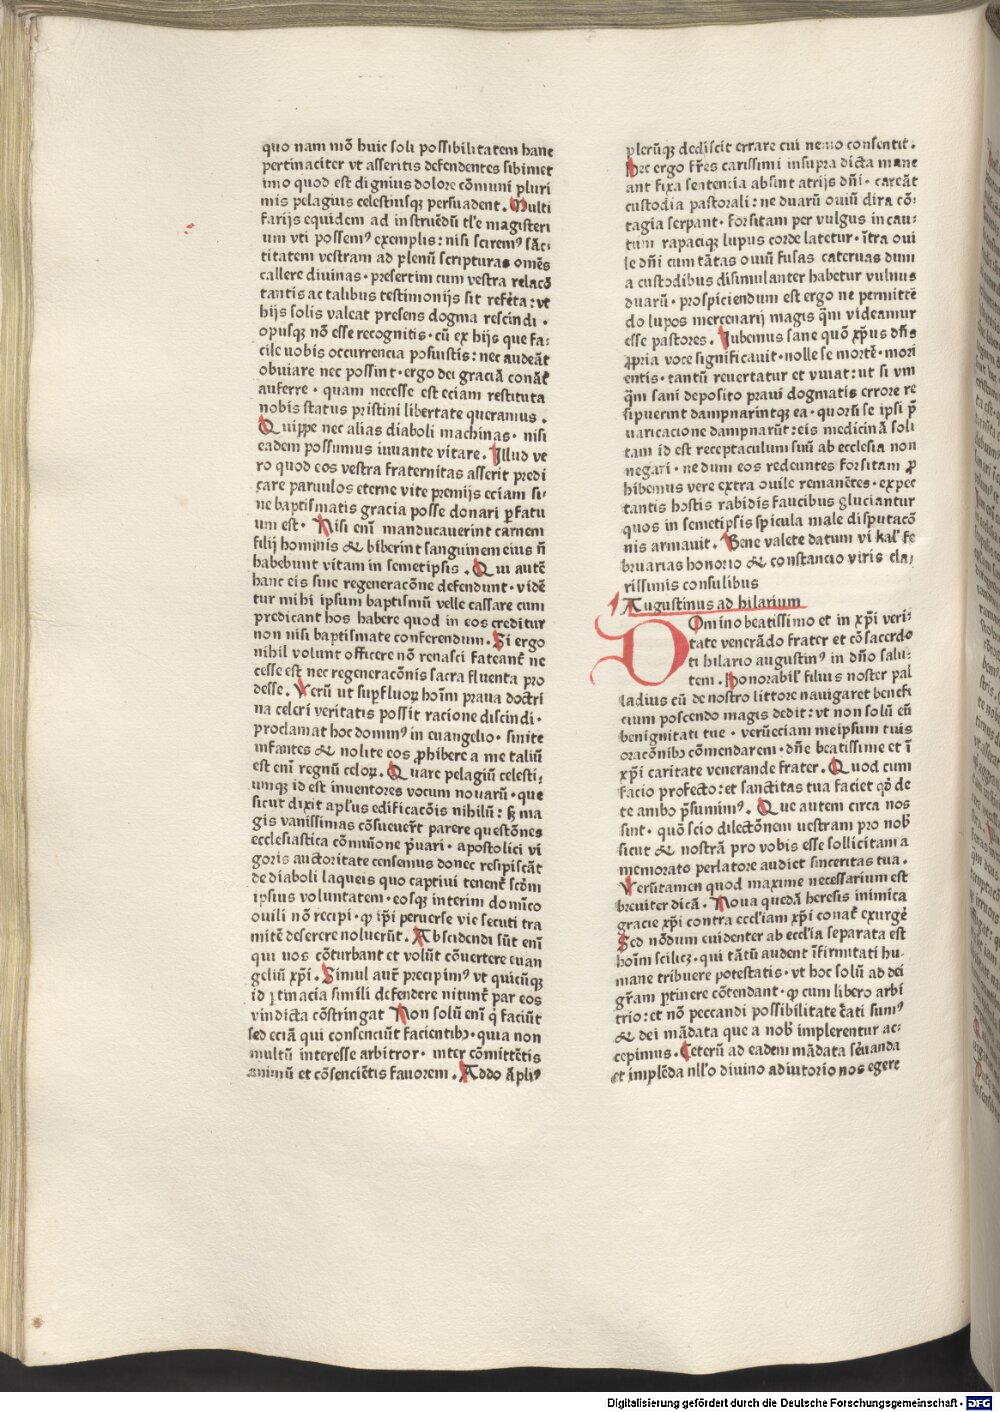 quo nam mō huic soli possibilitatem hanc
pertinaciter vt asseritis defendentes sibimet
imo quod est dignius dolore cōmuni pluri
mis pelagius celestiusqꝫ persuadent. Multi
farijs equidem ad instruēdū tl'e magisteri
um vti possemꝰ exemplis: nisi sciremꝰ sāc
titatem vestram ad plenū scripturas omēs
callere diuinas· presertim cum vestra relacō
tantis ac talibus testimonijs sit referta: vt
hijs solis valeat presens dogma rescindi·
opusqꝫ nō esse recognitis· cū ex hijs que fa-
cile uobis occurrencia posuistis: nec audeāt
obuiare nec possint· ergo dei graciā conāt̄
auferre· quam necesse est eciam restituta
nobis status pristini libertate queramus.
Quippe nec alias diaboli machinas· nisi
eadem possumus iuuante vitare. Illud ve
ro quod eos vestra fraternitas asserit predi
care paruulos eterne vite premijs eciam si-
ne baptismatis gracia posse donari ꝑfatu
um est· Nisi enī manducauerint carnem
filij hominis & biberint sanguinem eius nō
habebunt vitam in semetipsis. Qui autē
hanc eis sine regeneracōne defendunt· vidē
tur mihi ipsum baptismū velle cassare cum
predicant hos habere quod in eos creditur
non nisi baptismate conferendum. Si ergo
nihil volunt officere nō renasci fateant̄ ne
cesse est nec regeneracōnis sacra fluenta pro
desse. Verū ut suꝑfluoꝝ hoīm praua doctri
na celeri veritatis possit racione discindi·
proclamat hoc dominꝰ in euangelio· sinite
infantes & nolite eos ꝓhibere a me taliū
est enī regnū celoꝝ. Quare pelagiū celesti-
umqꝫ id est inuentores vocum nouarū· que
sicut dixit apl'us edificacōis nihilū: sꝫ ma
gis vanissimas cōsueuer̄t parere questōnes
ecclesiastica cōmūione p̄uari· apostolici vi
goris auctoritate censemus donec resipiscāt
de diaboli laqueis quo captiui tenent̄ scd̄m
ipsius voluntatem· eosqꝫ interim dominico
ouili nō recipi· qꝫ ip̄i peruerse vie secuti tra
mitē deserere noluerūt. Abscidendi sūt enī
qui uos cōturbant et volūt cōuertere euan
geliū xp̄i. Simul aut̄ precipimꝰ vt quicūqꝫ
id ꝑtinacia simili defendere nitunt̄ par eos
vindicta cōstringat Non solū enī q̄ faciūt
sed eciā qui consenciūt facientibꝫ· quia non
multū interesse arbitror· inter cōmittētis
animū et cōsenciētis fauorem. Addo āpliꝰ
plerūqꝫ dediscit errare cui nemo consentit.
Hec ergo fr̄es carissimi insupra dicta mane
ant fixa sentencia absint atrijs dn̄i· careāt
custodia pastorali: ne duarū ouiū dira cō-
tagia serpant· forsitam per vulgus incau-
tum rapaciqꝫ lupus corde letetur· ītra oui
le dn̄i cum tātas ouiū fusas cateruas dum
a custodibus disimulanter habetur vulnus
duarū· prospiciendum est ergo ne permittē
do lupos mercenarij magis q̄m videamur
esse pastores. Iubemus sane quō xp̄us dn̄s
ꝓpria voce significauit· nolle se mortē· mori
entis· tantū reuertatur et viuat: ut si vm
q̄m sani deposito praui dogmatis errore re
sipuerint dampnarintqꝫ ea· quorū se ipsi p̄
uaricacione dampnarūt: eis medicinā soli
tam id est receptaculum suū ab ecclesia non
negari· ne dum eos redeuntes forsitam ꝓ
hibemus vere extra ouile remanētes· expec
tantis hostis rabidis faucibus gluciantur
quos in semetipsis spicula male disputacō
nis armauit. Bene valete datum vi kal' fe
bruarias honorio & constancio viris cla-
rissimis consulibus
Augustinus ad hilarium
Domino beatissimo et in xp̄i veri
tate venerādo frater et cōsacerdo
ti hilario augustinꝰ in dn̄o salu-
tem. Honorabil' filius noster pal
ladius cū de nostro littore nauigaret benefi
cium poscendo magis dedit: vt non solū eū
benignitati tue· verūeciam meipsum tuis
oracōnibꝫ cōmendarem· dn̄e beatissime et ī
xp̄i caritate venerande frater. Quod cum
facio profecto: et sanctitas tua faciet qd̄ de
te ambo p̄sumimꝰ. Que autem circa nos
sint· quō scio dilectōnem uestram pro nob̄
sicut & nostrā pro vobis esse sollicitam a
memorato perlatore audiet sinceritas tua.
Verūtamen quod maxime necessarium est
breuiter dicā. Noua quedā heresis inimica
gracie xp̄i contra eccl'iam xp̄i conat̄ exurgē
Sed nōdum euidenter ab eccl'ia separata est
hoīm scilicꝫ· qui tātū audent īfirmitati hu-
mane tribuere potestatis· vt hoc solū ad dei
gr̄am ꝑtinere cōtendant· qꝫ cum libero arbi
trio: et nō peccandi possibilitate c̄ati sumꝰ
& dei mādata que a nob̄ implerentur ac-
cepimus. Ceterū ad eadem mādata s̄uanda
et implēda nll'o diuino adiutorio nos egere